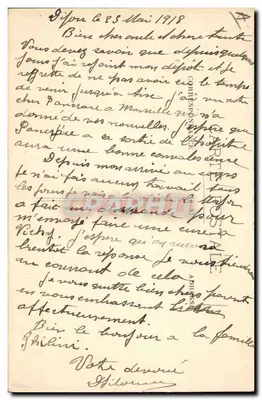 Dijon le 23 Mai 1918
Bien cher oncle et chere tante
Vous devez savoir que depuis quelques
jours j'ai rejoint mon dépot et je
regrette de ne pas avoir eu le temps
de venir jusqu'a Aix j'ai vu notre
cher Pancrace a Marseille
donne de vos nouvelles j'espère que
Pancrace a sa sortie de l'hopital
aura une bonne convalescence
Depuis mon arrivé au corps
je n'ai fais aucun travail tous
les jours je vais
a fait pour
m'envoyé faire une cure a
Vichy j'espère
bientot la réponse je vous tiendrai
au courant de cela
Je vous quitte bien chers parents
en vous embrassant
affectueusement
Bien le bonjour a la famille
Ghilini
Votre devoué
CORRESPONDANCE
ADRESSE